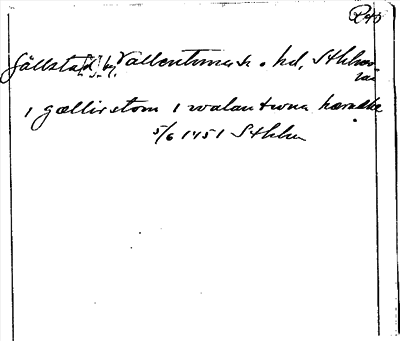 Gällsta[d], by, Vallentuna sn o hd, Sthlms
län
i gællirstom i walantwna hæradhe
5/6 1451 Sthlm